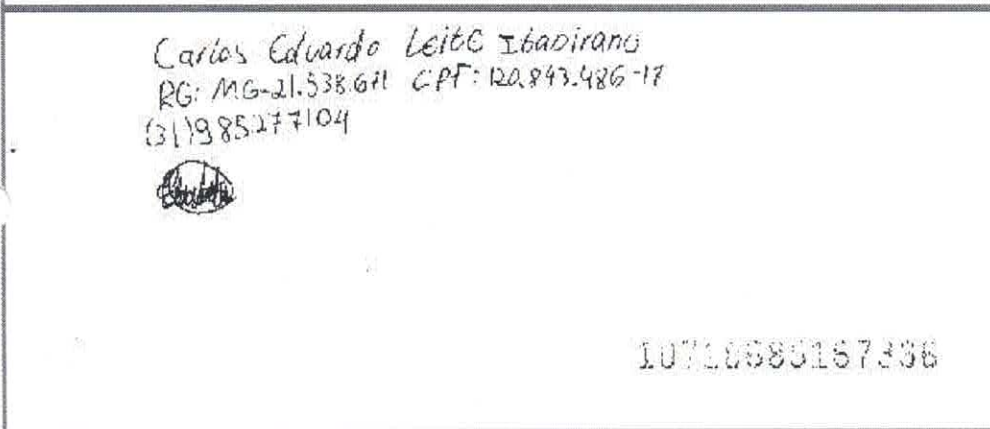 Carlos Eduardo Leite Itabirano
RG: MG-21.538.671 CPF: 120.843.486-17
(31)985277104